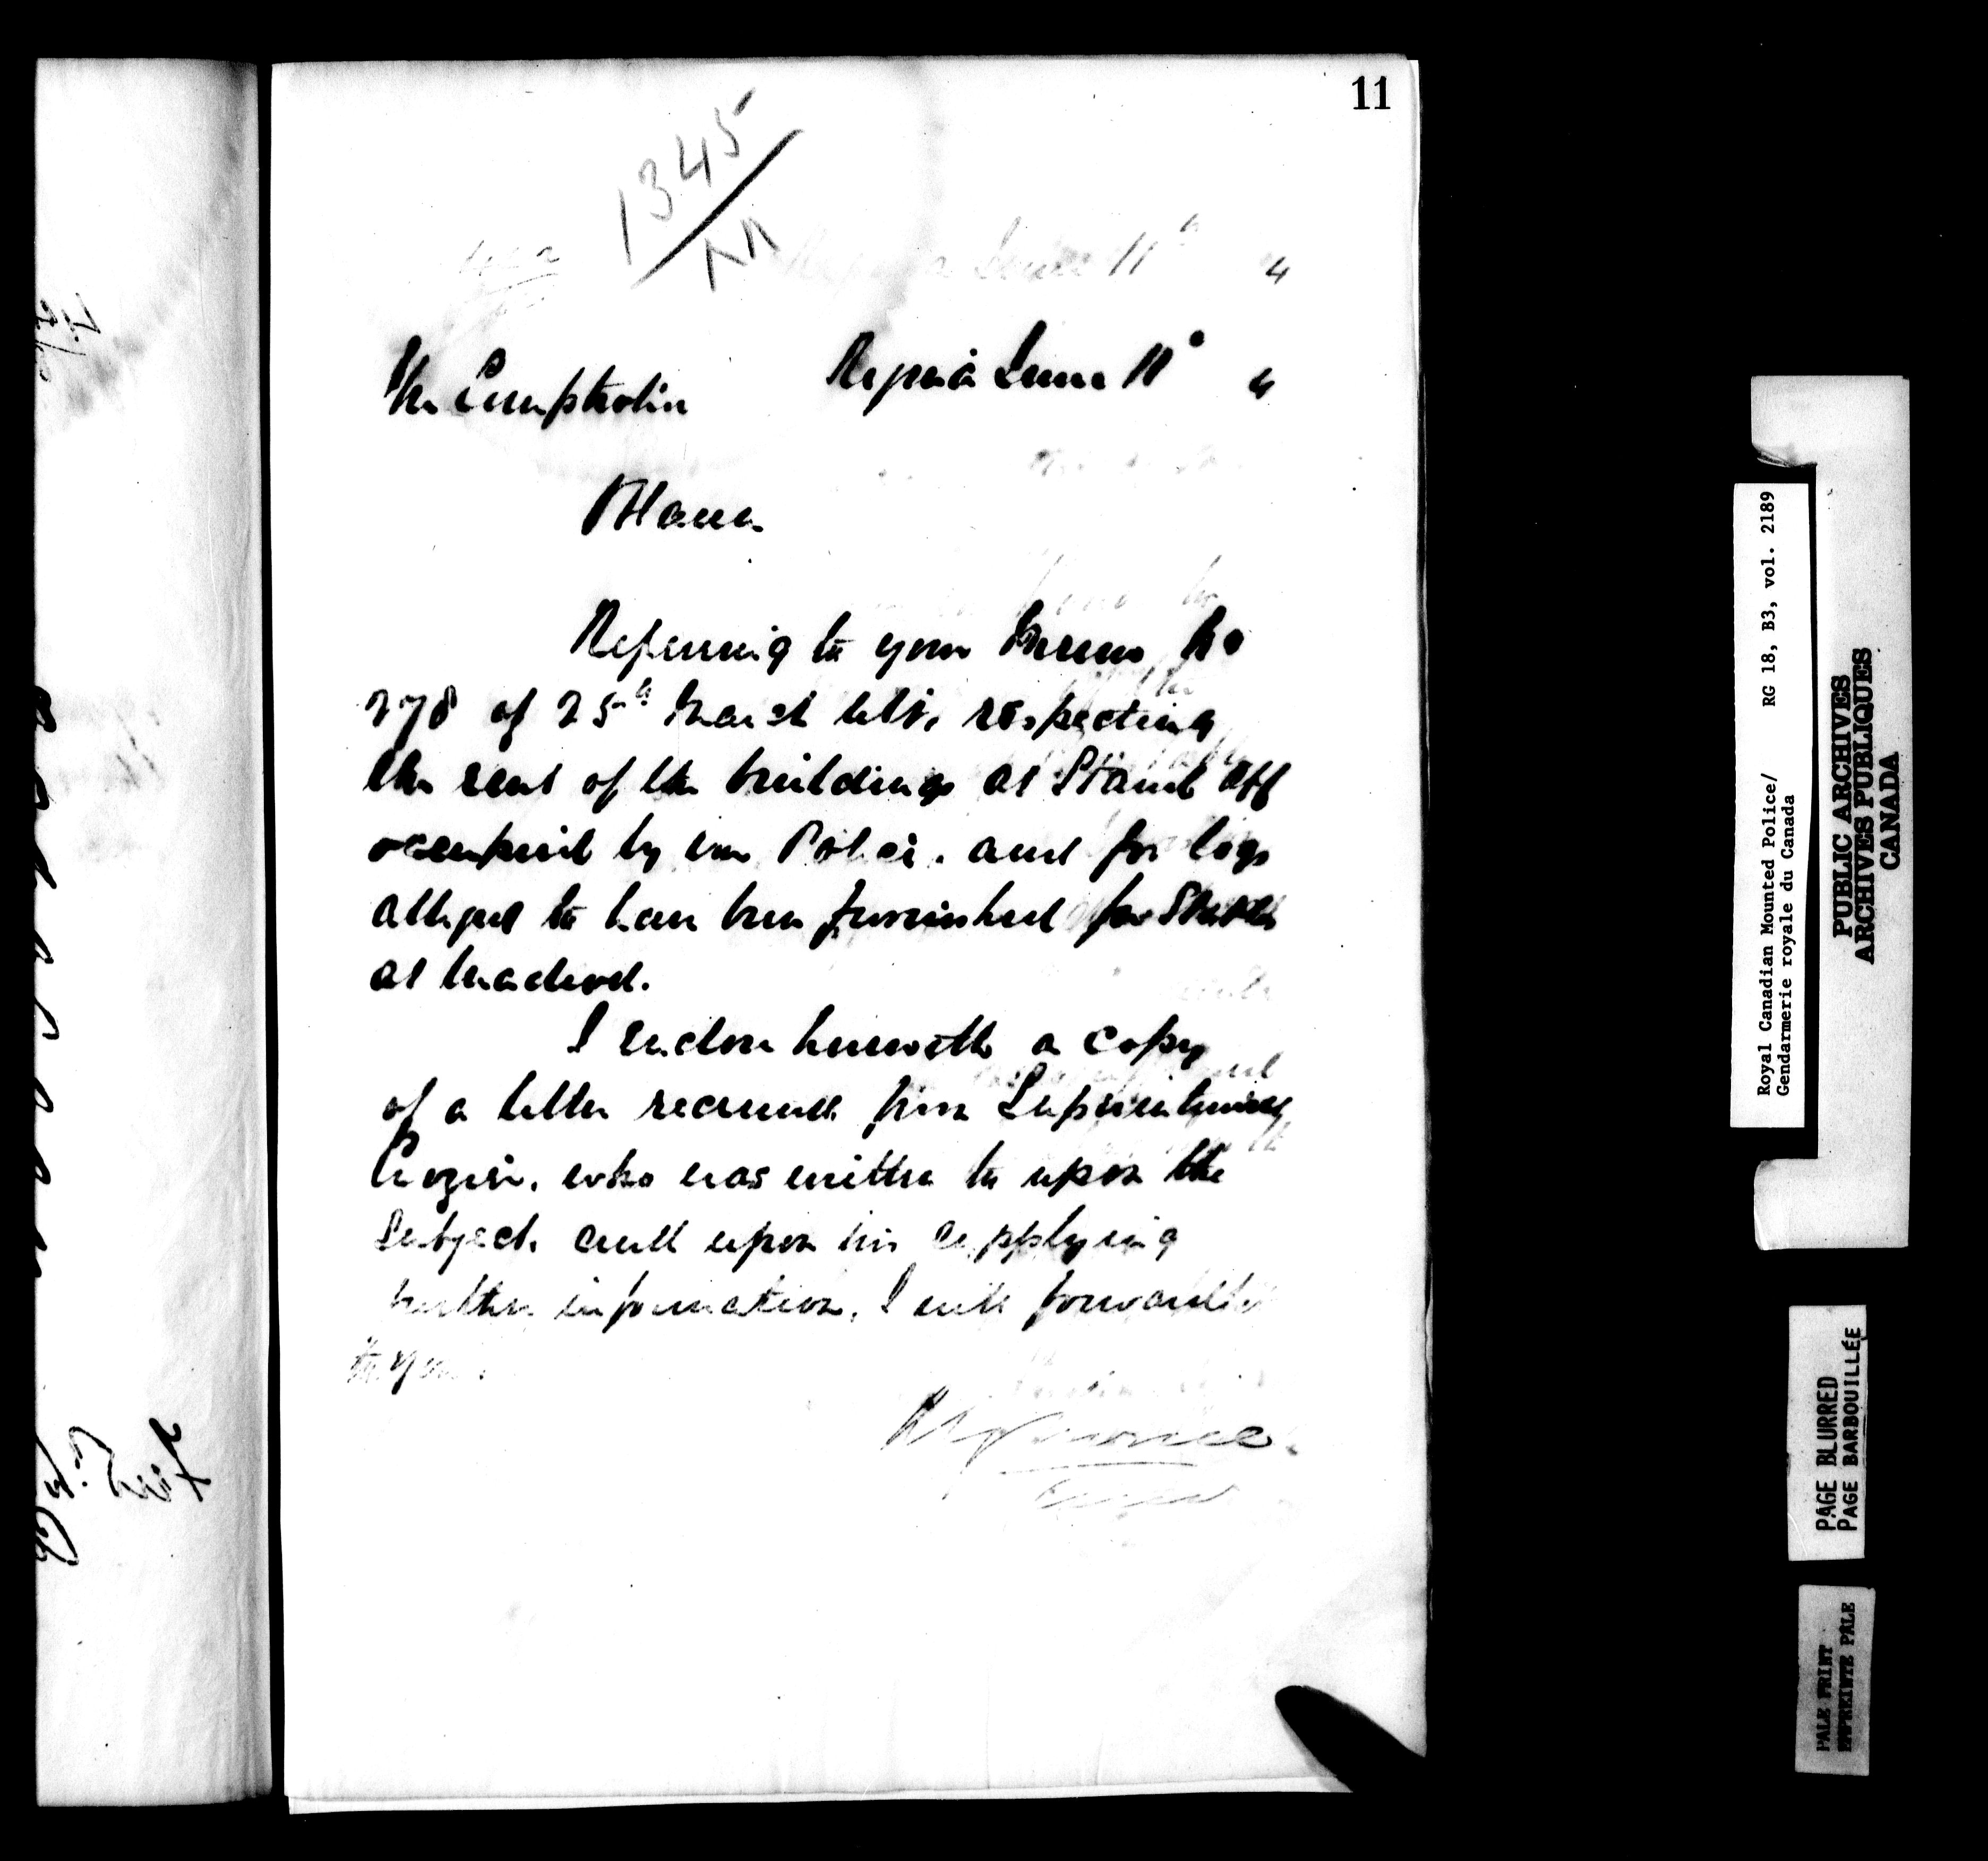 11
1345
Regina June 11th 4
The Comptroller
Regina June 11th 4
Ottawa
Referring to your Memo No
278 of 25th March ulto, respecting
the rent of the buildings at Stand Off
occupied by our Police, and for logs
alleged to have been furnished for Stables
at Macleod.
I enclose herewith a copy
of a letter received from Superintendent
Crozier, who was written to upon the
Subject, and upon his supplying
further information, I will forward it
to you.
Royal Canadian Mounted Police/ RG 18, B3, vol. 2189
Gendarmerie royale du Canada
PUBLIC ARCHIVES
ARCHIVES PUBLIQUES
CANADA
PAGE BLURRED
PAGE BARBOUILLÉE
PALE PRINT
EMPREINTE PÂLE